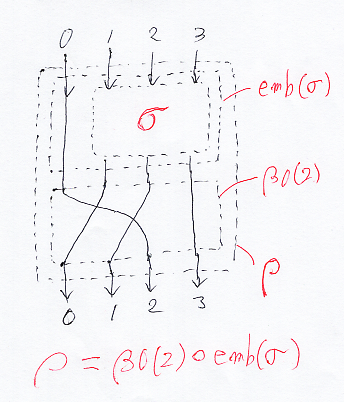 0 1 2 3
emb(σ)
σ
β0(2)
ρ
0 1 2 3
ρ = β0(2) ∘ emb(σ)